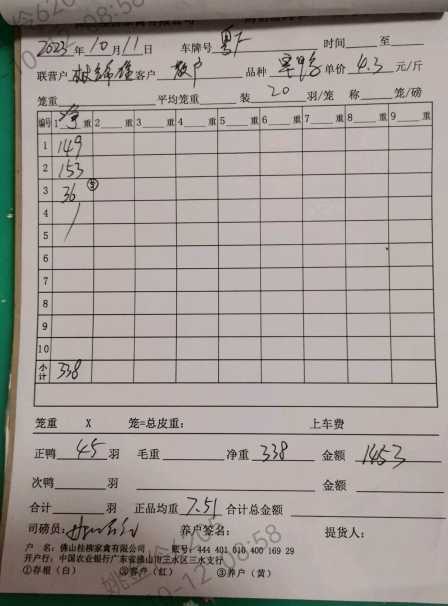 2023年10月11日 车牌号 粤 时间 至
联营户 客户 散户 品种 单价 4.3 元/斤
笼重 平均笼重 装 20 羽/笼 称 笼/磅
编号 1 重 2 重 3 重 4 重 5 重 6 重 7 重 8 重 9 重
1 149
2 153
3 36 ⑤
4
5
6
7
8
9
10
小计 338
笼重 X 笼=总皮重: 上车费
正鸭 45 羽 毛重 净重 338 金额 1453
次鸭 羽 金额
合计 羽 正品均重 7.51 合计总金额
司磅员: 养户签名: 提货人:
户 名: 佛山桂柳家禽有限公司 账号: 444 401 010 400 169 29
开户行: 中国农业银行广东省佛山市三水区三水支行
①存根（白） ②客户（红） ③养户（黄）